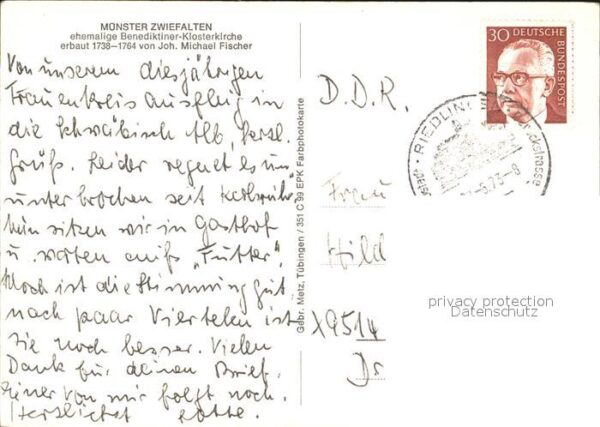 MÜNSTER ZWIEFALTEN
ehemalige Benediktiner-Klosterkirche
erbaut 1738–1764 von Joh. Michael Fischer
Von unserem diesjährigen
Frauenkreis Ausflug in
die Schwäbisch Alb, herzl.
Gruß. Leider regnet es un
unterbrochen seit Karlsruhe
sitzen wir in Gasthof
u. warten aufs "Futter".
Noch ist die Stimmung gut,
nach paar Vierteln ist
sie noch besser. Vielen
Dank für deinen Brief.
von mir folgt noch.
Herzlichst Lotte.
Gebr. Metz, Tübingen / 351 C 99 EPK Farbphotokarte
30 DEUTSCHE BUNDESPOST
RIEDLINGEN
D.D.R.
Frau
Hild
X9514
Dr
privacy protection
Datenschutz